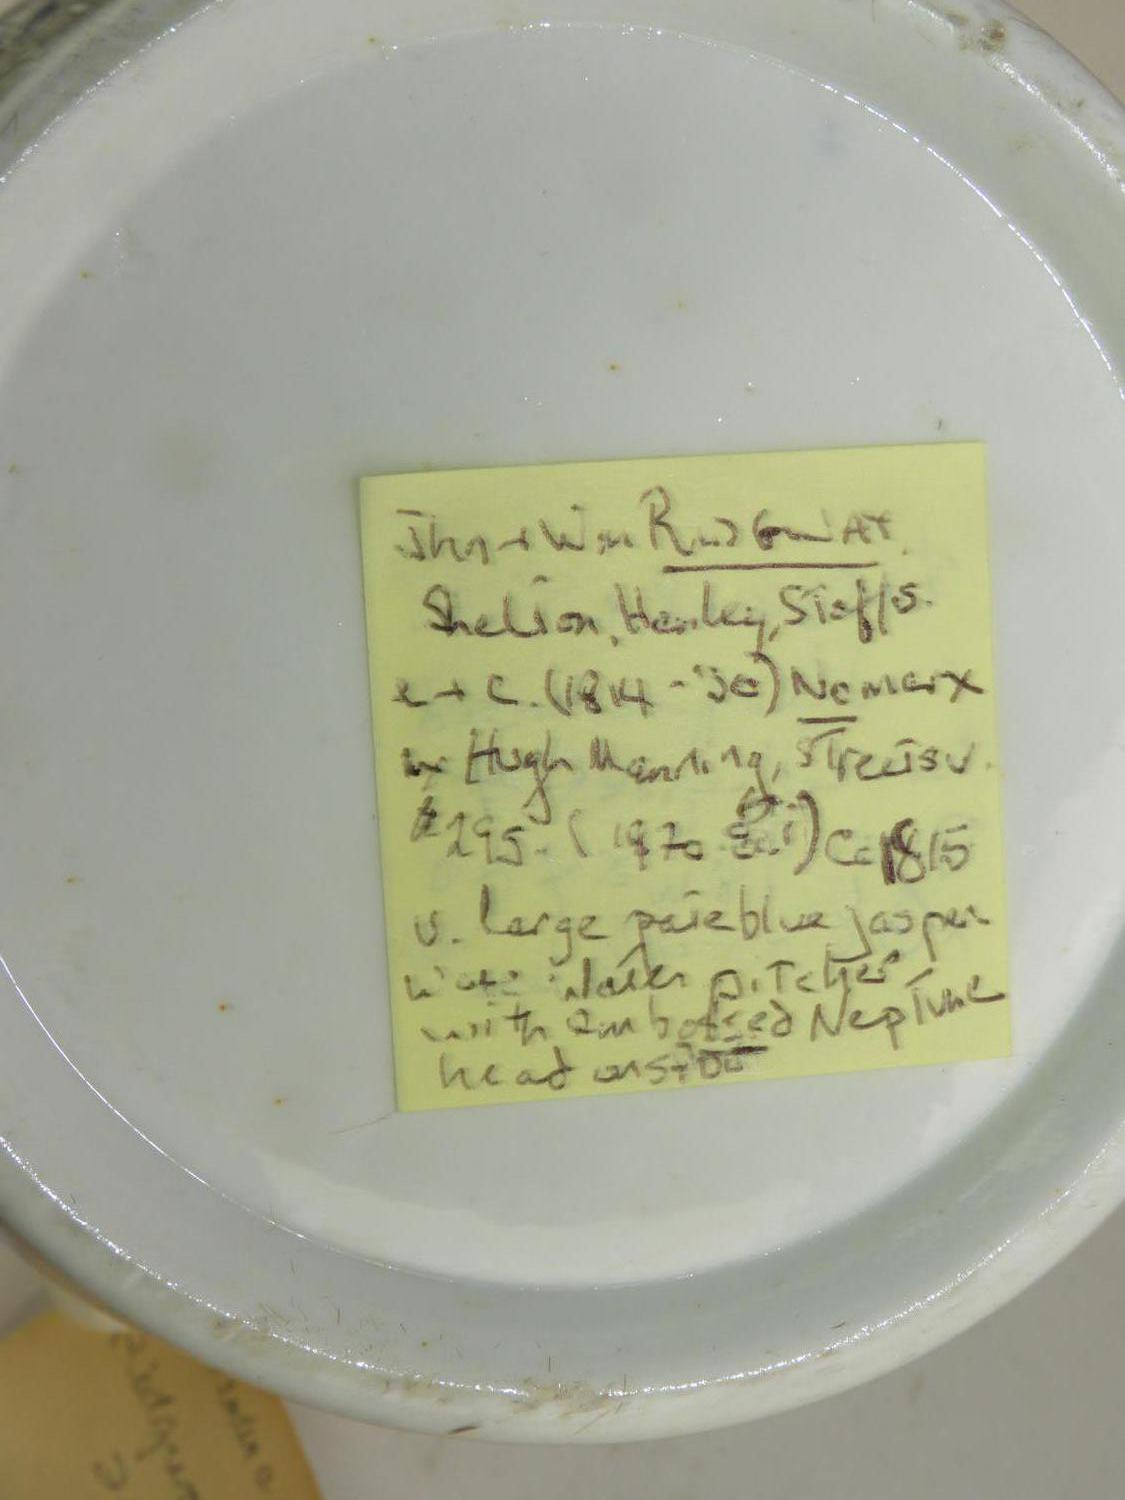 Jhn + Wm RIDGWAY.
Shelton, Hanley, Staffs.
e + c. (1814 - '30) No mark
Hugh Manning, Streetsv.
$295. (1970 Ca 1815
v. large pale blue jasper
ware water pitcher
with embossed Neptune
head on spout